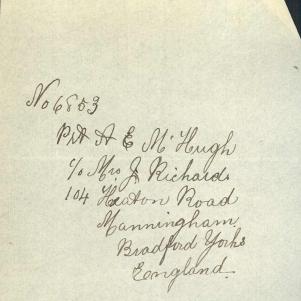 No 6853
Pvt A E McHugh
c/o Mrs J Richards
104 Heaton Road
Manningham
Bradford Yorks
England